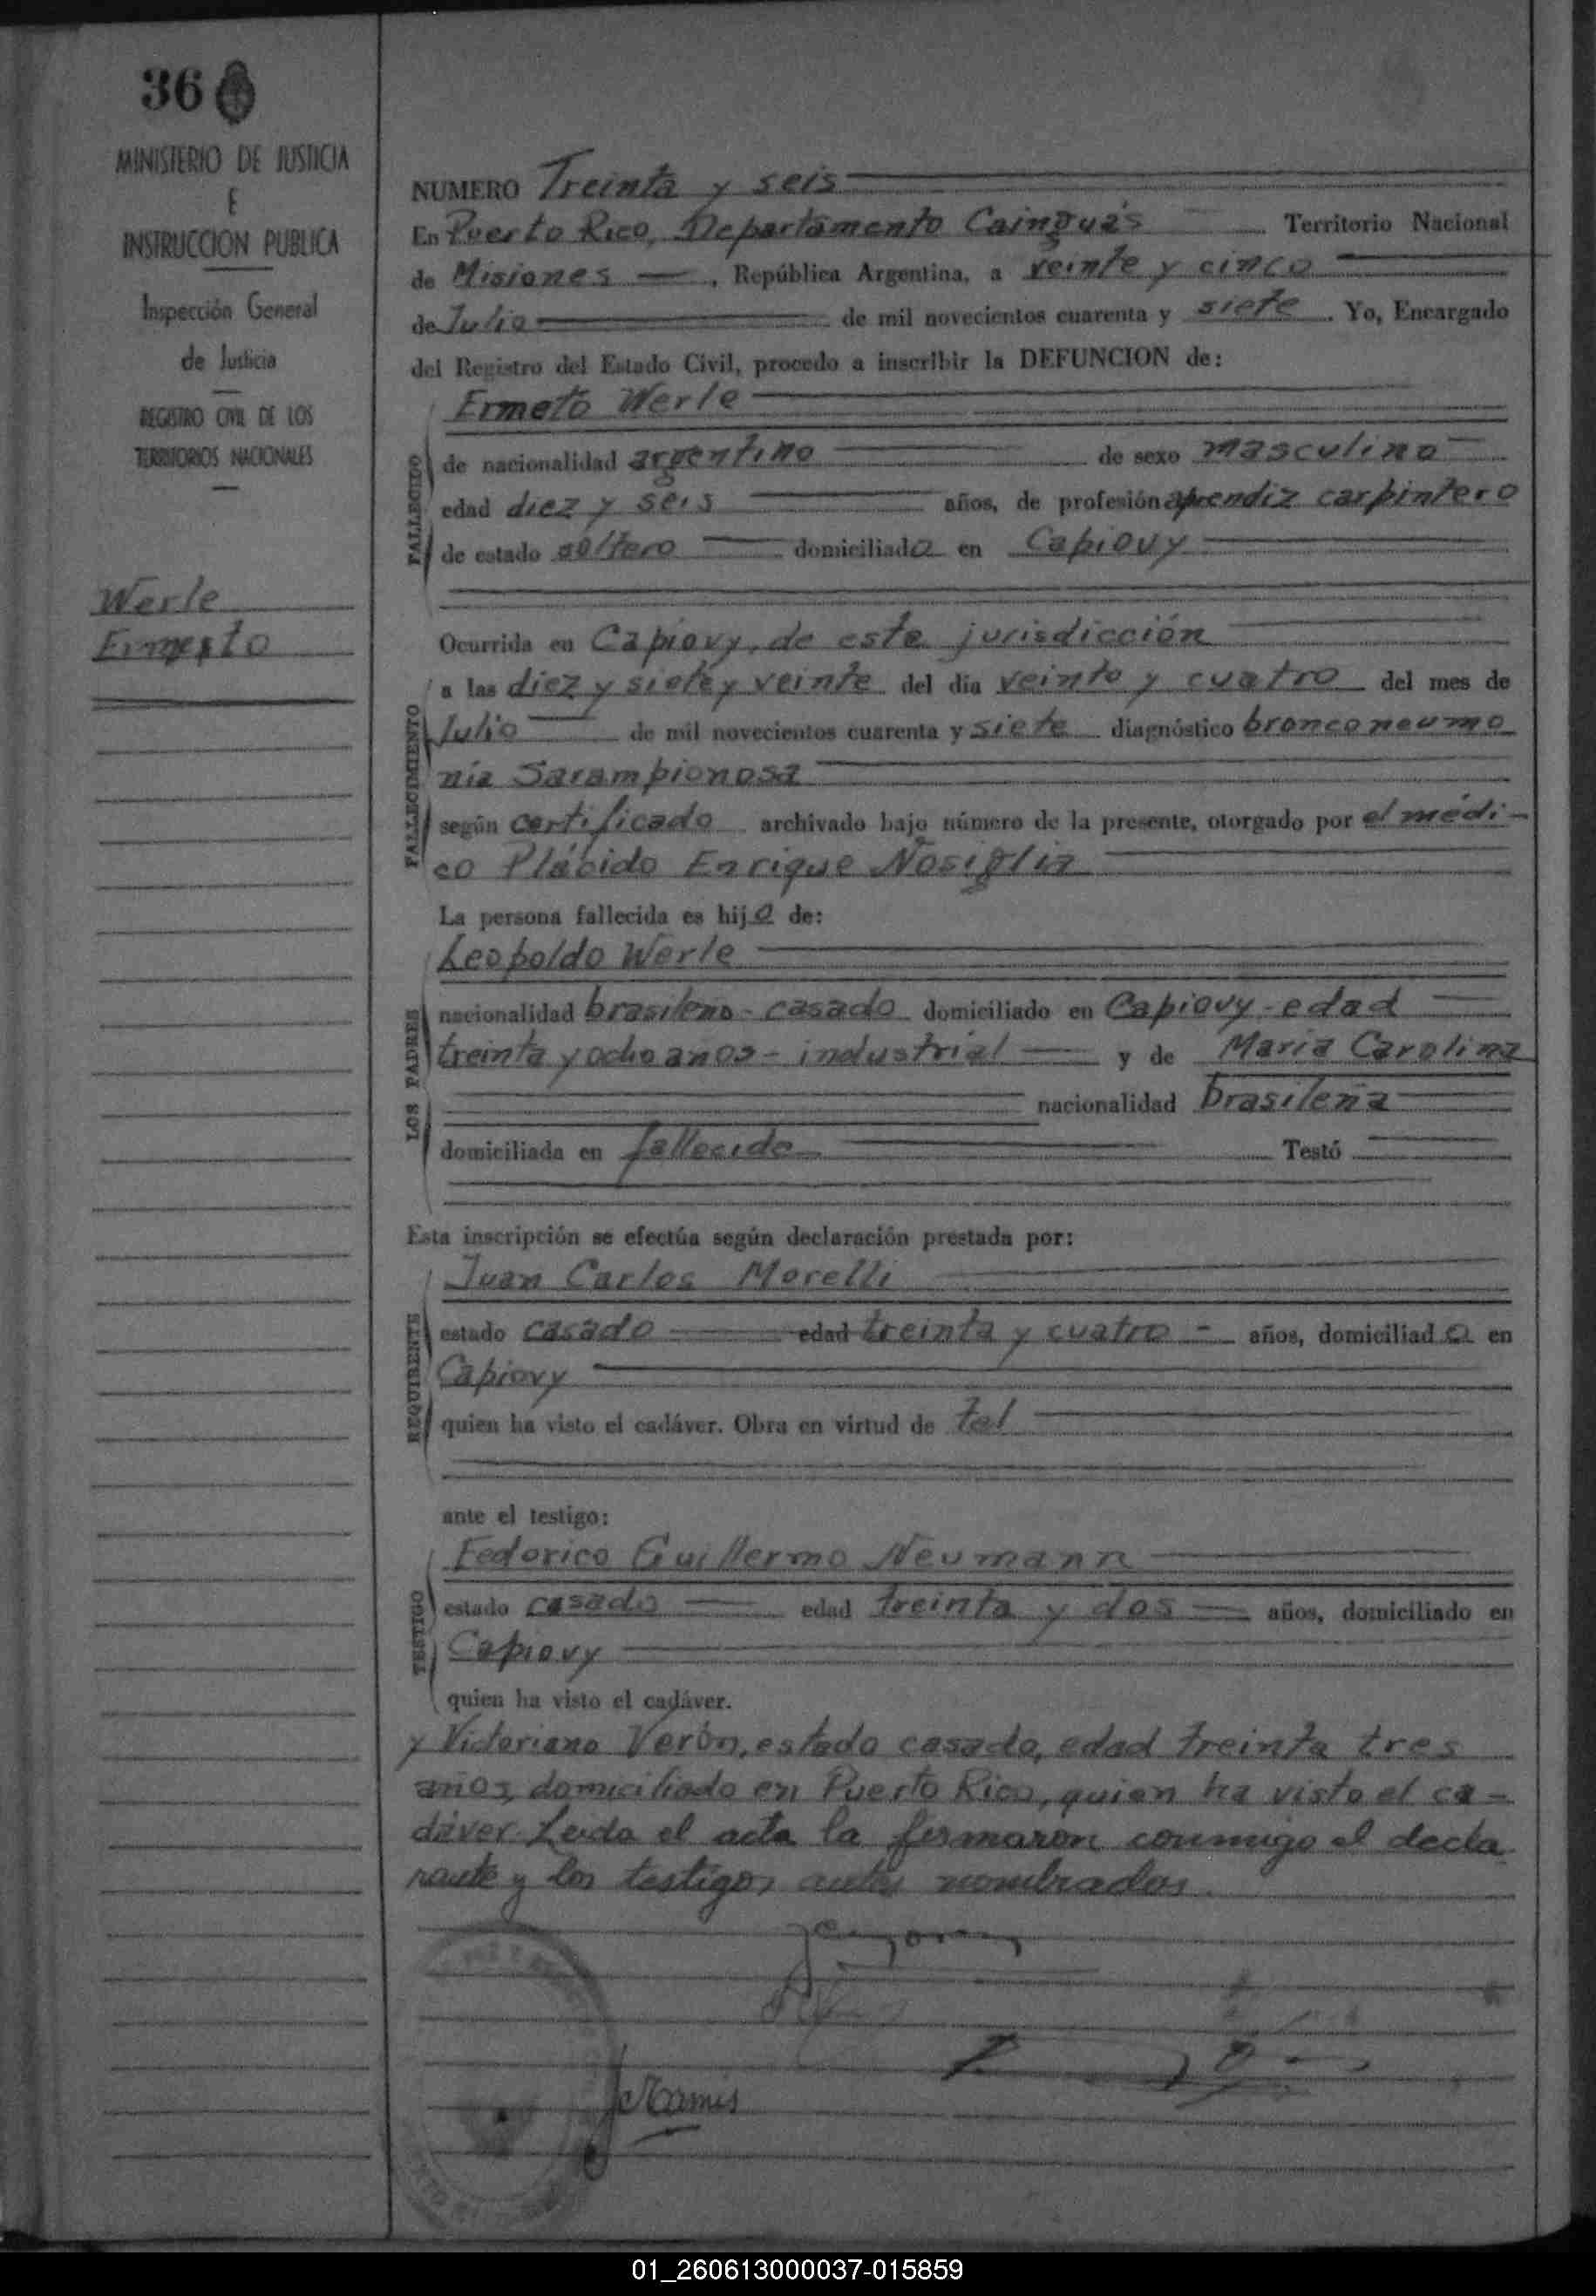 36
MINISTERIO DE JUSTICIA
E
INSTRUCCION PUBLICA
Inspección General
de Justicia
REGISTRO CIVIL DE LOS
TERRITORIOS NACIONALES
Werle
Ermesto
NUMERO Treinta y seis
En Puerto Rico, Departamento Cainguás Territorio Nacional
de Misiones, República Argentina, a veinte y cinco
de Julio de mil novecientos cuarenta y siete. Yo, Encargado
del Registro del Estado Civil, procedo a inscribir la DEFUNCION de:
Ermeto Werle
FALLECIDO
de nacionalidad argentino de sexo masculino
edad diez y seis años, de profesión aprendiz carpintero
de estado soltero domiciliado en Capiovy
Ocurrida en Capiovy, de este jurisdicción
FALLECIMIENTO
a las diez y siete y veinte del día veinte y cuatro del mes de
Julio de mil novecientos cuarenta y siete diagnóstico bronconeumo
nía Sarampionosa
según certificado archivado bajo número de la presente, otorgado por el médi-
co Plácido Enrique Nosiglia
La persona fallecida es hijo de:
LOS PADRES
Leopoldo Werle
nacionalidad brasileño - casado domiciliado en Capiovy - edad
treinta y ocho anos - industrial y de Maria Carolina
nacionalidad brasileña
domiciliada en fallecida Testó
Esta inscripción se efectúa según declaración prestada por:
REQUIRENTE
Juan Carlos Morelli
estado casado edad treinta y cuatro - años, domiciliado en
Capiovy
quien ha visto el cadáver. Obra en virtud de tal
ante el testigo:
TESTIGO
Federico Guillermo Neumann
estado casado edad treinta y dos años, domiciliado en
Capiovy
quien ha visto el cadáver.
y Victoriano Verón, estado casado, edad treinta tres
años, domiciliado en Puerto Rico, quien ha visto el ca-
dáver. Leida el acta la firmaron conmigo el decla
rante y los testigos antes nombrados.
01_260613000037-015859